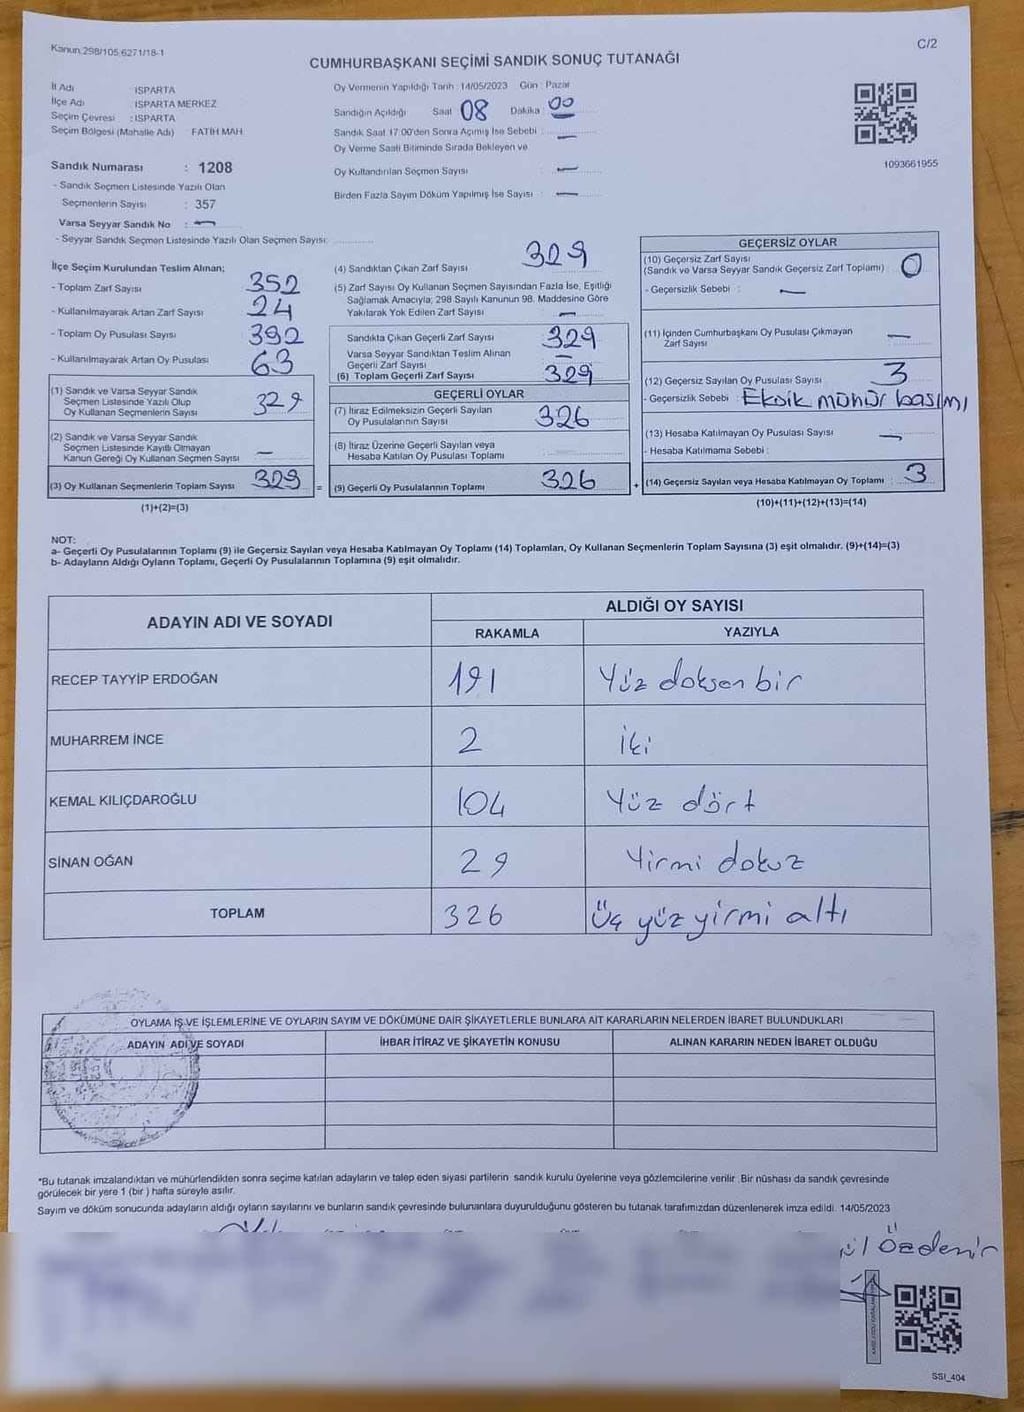 Kanun.298/105.6271/18-1
C/2
CUMHURBAŞKANI SEÇİMİ SANDIK SONUÇ TUTANAĞI
İl Adı : ISPARTA
İlçe Adı : ISPARTA MERKEZ
Seçim Çevresi : ISPARTA
Seçim Bölgesi (Mahalle Adı) FATİH MAH
Sandık Numarası : 1208
- Sandık Seçmen Listesinde Yazılı Olan
Seçmenlerin Sayısı : 357
Varsa Seyyar Sandık No : —
- Seyyar Sandık Seçmen Listesinde Yazılı Olan Seçmen Sayısı:
Oy Vermenin Yapıldığı Tarih : 14/05/2023 Gün : Pazar
Sandığın Açıldığı Saat 08 Dakika : 00
Sandık Saat 17:00'den Sonra Açımış İse Sebebi : —
Oy Verme Saati Bitiminde Sırada Bekleyen ve
Oy Kullandırılan Seçmen Sayısı —
Birden Fazla Sayım Döküm Yapılmış İse Sayısı : —
1093661955
İlçe Seçim Kurulundan Teslim Alınan;
- Toplam Zarf Sayısı 352
- Kullanılmayarak Artan Zarf Sayısı 24
- Toplam Oy Pusulası Sayısı 392
- Kullanılmayarak Artan Oy Pusulası 63
(1) Sandık ve Varsa Seyyar Sandık
Seçmen Listesinde Yazılı Olup
Oy Kullanan Seçmenlerin Sayısı 329
(2) Sandık ve Varsa Seyyar Sandık
Seçmen Listesinde Kayıtlı Olmayan
Kanun Gereği Oy Kullanan Seçmen Sayısı —
(3) Oy Kullanan Seçmenlerin Toplam Sayısı 329 =
(1)+(2)=(3)
(4) Sandıktan Çıkan Zarf Sayısı 329
(5) Zarf Sayısı Oy Kullanan Seçmen Sayısından Fazla İse, Eşitliği
Sağlamak Amacıyla; 298 Sayılı Kanunun 98. Maddesine Göre
Yakılarak Yok Edilen Zarf Sayısı —
Sandıkta Çıkan Geçerli Zarf Sayısı 329
Varsa Seyyar Sandıktan Teslim Alınan
Geçerli Zarf Sayısı —
(6) Toplam Geçerli Zarf Sayısı 329
GEÇERLİ OYLAR
(7) İtiraz Edilmeksizin Geçerli Sayılan
Oy Pusulalarının Sayısı 326
(8) İtiraz Üzerine Geçerli Sayılan veya
Hesaba Katılan Oy Pusulası Toplamı
(9) Geçerli Oy Pusulalarının Toplamı 326 +
GEÇERSİZ OYLAR
(10) Geçersiz Zarf Sayısı
(Sandık ve Varsa Seyyar Sandık Geçersiz Zarf Toplamı) : 0
- Geçersizlik Sebebi : —
(11) İçinden Cumhurbaşkanı Oy Pusulası Çıkmayan
Zarf Sayısı —
(12) Geçersiz Sayılan Oy Pusulası Sayısı 3
- Geçersizlik Sebebi : Eksik mühür basımı
(13) Hesaba Katılmayan Oy Pusulası Sayısı —
- Hesaba Katılmama Sebebi :
(14) Geçersiz Sayılan veya Hesaba Katılmayan Oy Toplamı : 3
(10)+(11)+(12)+(13)=(14)
NOT:
a- Geçerli Oy Pusulalarının Toplamı (9) ile Geçersiz Sayılan veya Hesaba Katılmayan Oy Toplamı (14) Toplamları, Oy Kullanan Seçmenlerin Toplam Sayısına (3) eşit olmalıdır. (9)+(14)=(3)
b- Adayların Aldığı Oyların Toplamı, Geçerli Oy Pusulalarının Toplamına (9) eşit olmalıdır.
ADAYIN ADI VE SOYADI
ALDIĞI OY SAYISI
RAKAMLA YAZIYLA
RECEP TAYYİP ERDOĞAN 191 Yüz doksan bir
MUHARREM İNCE 2 İki
KEMAL KILIÇDAROĞLU 104 Yüz dört
SİNAN OĞAN 29 Yirmi dokuz
TOPLAM 326 Üç yüz yirmi altı
OYLAMA İŞ VE İŞLEMLERİNE VE OYLARIN SAYIM VE DÖKÜMÜNE DAİR ŞİKAYETLERLE BUNLARA AİT KARARLARIN NELERDEN İBARET BULUNDUKLARI
ADAYIN ADI VE SOYADI İHBAR İTİRAZ VE ŞİKAYETİN KONUSU ALINAN KARARIN NEDEN İBARET OLDUĞU
*Bu tutanak imzalandıktan ve mühürlendikten sonra seçime katılan adayların ve talep eden siyasi partilerin sandık kurulu üyelerine veya gözlemcilerine verilir. Bir nüshası da sandık çevresinde
görülecek bir yere 1 (bir ) hafta süreyle asılır.
Sayım ve döküm sonucunda adayların aldığı oyların sayılarını ve bunların sandık çevresinde bulunanlara duyurulduğunu gösteren bu tutanak tarafımızdan düzenlenerek imza edildi. 14/05/2023
Özdemir
SSI_404